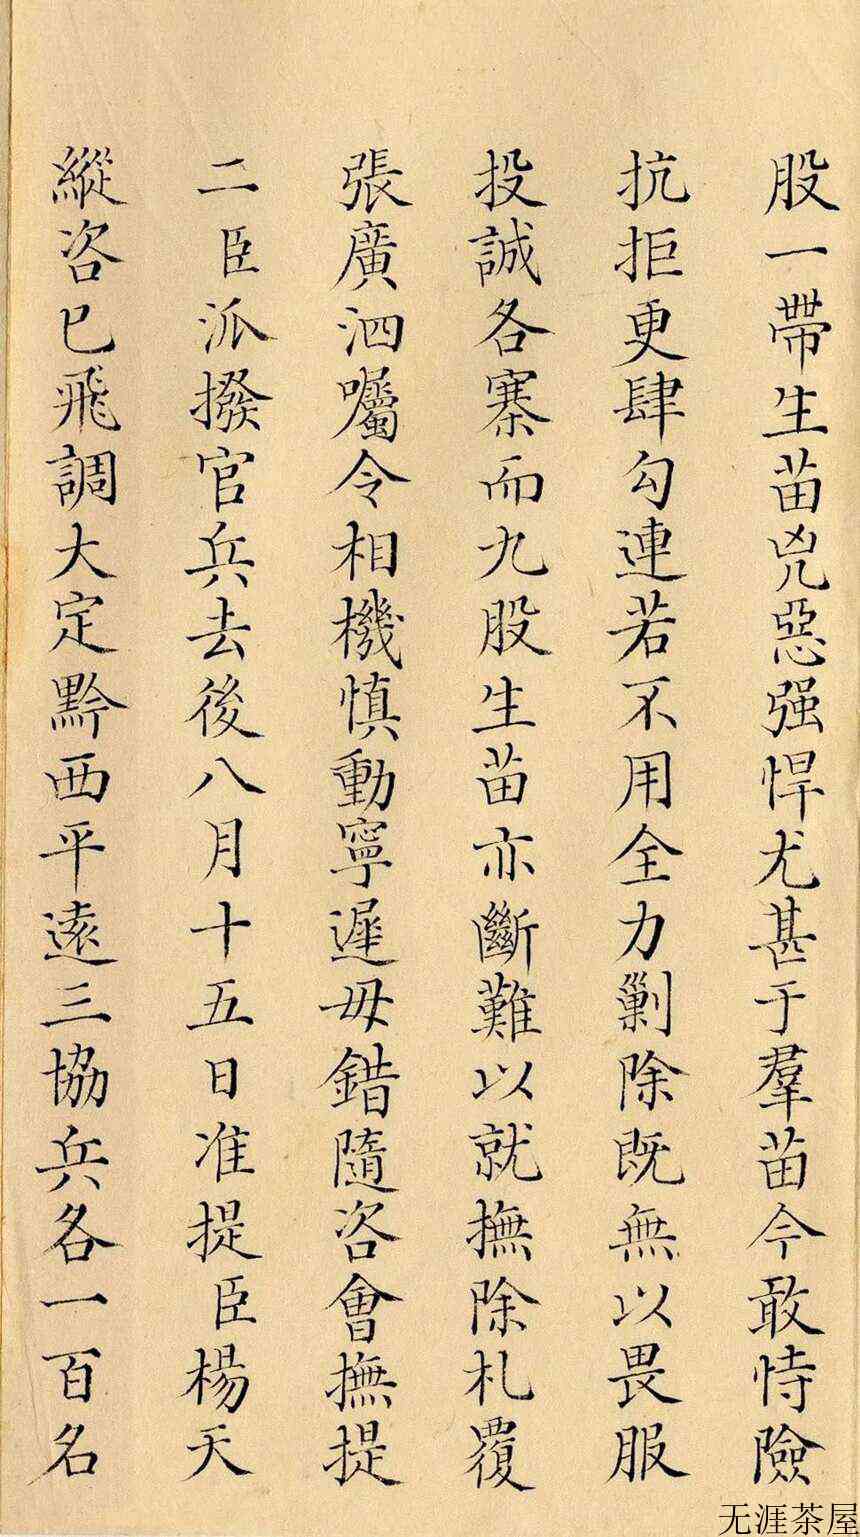 股一帶生苗兇惡强悍尤甚于羣苗今敢恃險
抗拒更肆勾連若不用全力剿除既無以畏服
投誠各寨而九股生苗亦斷難以就撫除札覆
張廣泗囑令相機慎動寧遲毋錯隨咨會撫提
二臣派撥官兵去後八月十五日准提臣楊天
縱咨已飛調大定黔西平遠三協兵各一百名
无涯茶屋